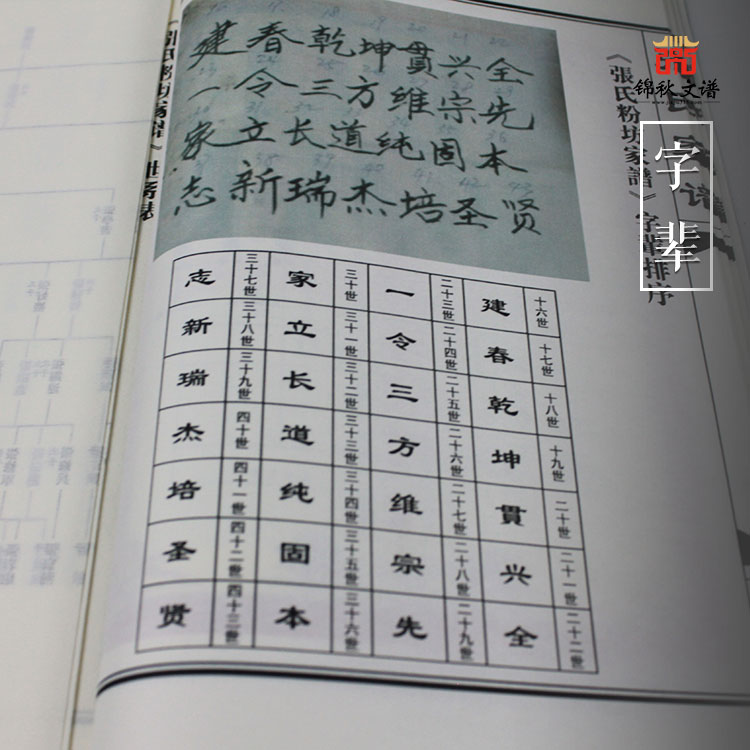 錦秋文谱
字辈
《張氏粉坊家譜》字輩排序
建春乾坤貫兴全
一令三方维宗先
家立长道纯固本
志新瑞杰培圣贤
建 十六世
春 十七世
乾 十八世
坤 十九世
貫 二十世
兴 二十一世
全 二十二世
一 二十三世
令 二十四世
三 二十五世
方 二十六世
维 二十七世
宗 二十八世
先 二十九世
家 三十世
立 三十一世
长 三十二世
道 三十三世
纯 三十四世
固 三十五世
本 三十六世
志 三十七世
新 三十八世
瑞 三十九世
杰 四十世
培 四十一世
圣 四十二世
贤 四十三世